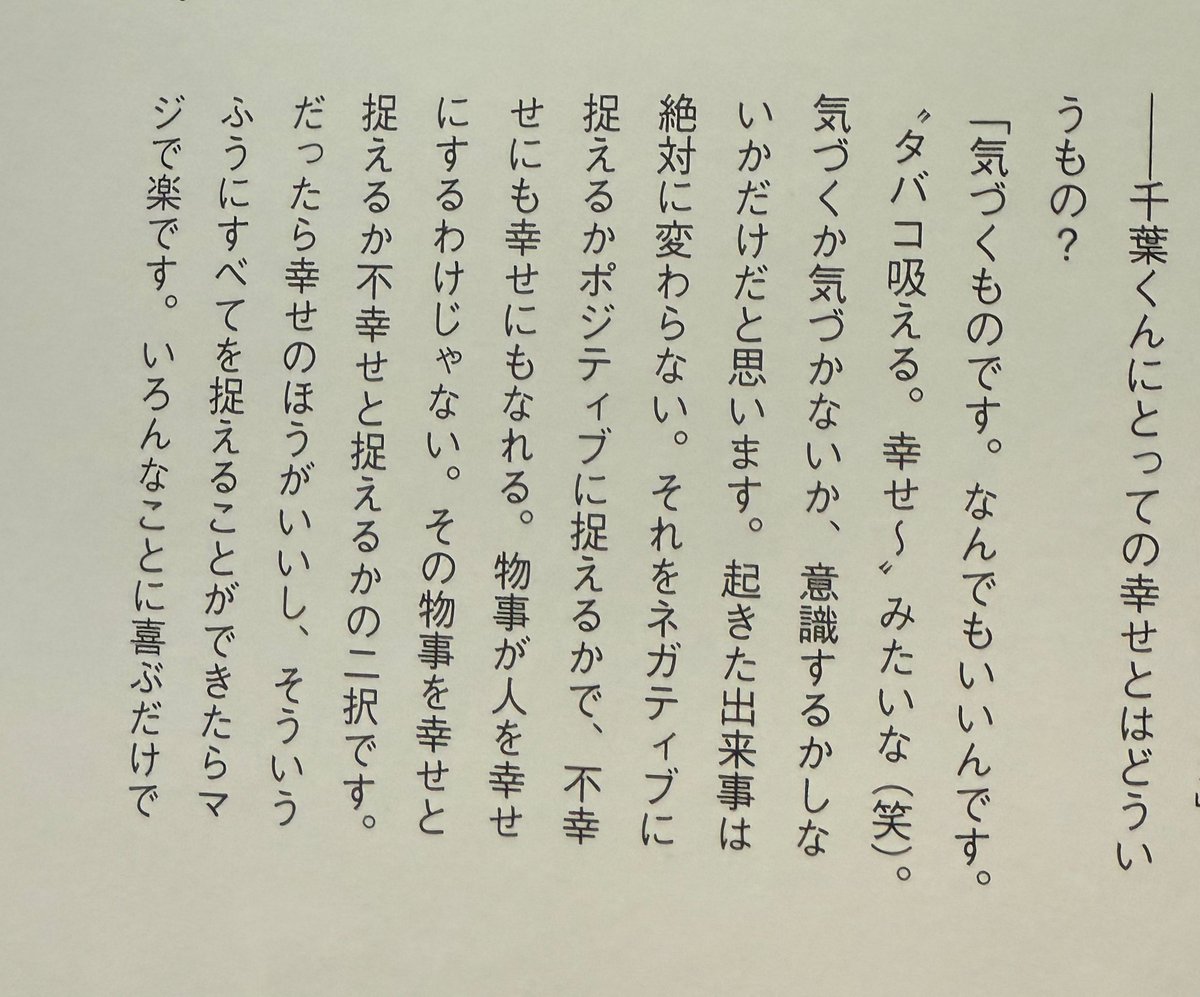 ――千葉くんにとっての幸せとはどうい
うもの？
「気づくものです。なんでもいいんです。
〝タバコ吸える。幸せ〜〟みたいな（笑）。
気づくか気づかないか、意識するかしな
いかだけだと思います。起きた出来事は
絶対に変わらない。それをネガティブに
捉えるかポジティブに捉えるかで、不幸
せにも幸せにもなれる。物事が人を幸せ
にするわけじゃない。その物事を幸せと
捉えるか不幸せと捉えるかの二択です。
だったら幸せのほうがいいし、そういう
ふうにすべてを捉えることができたらマ
ジで楽です。いろんなことに喜ぶだけで